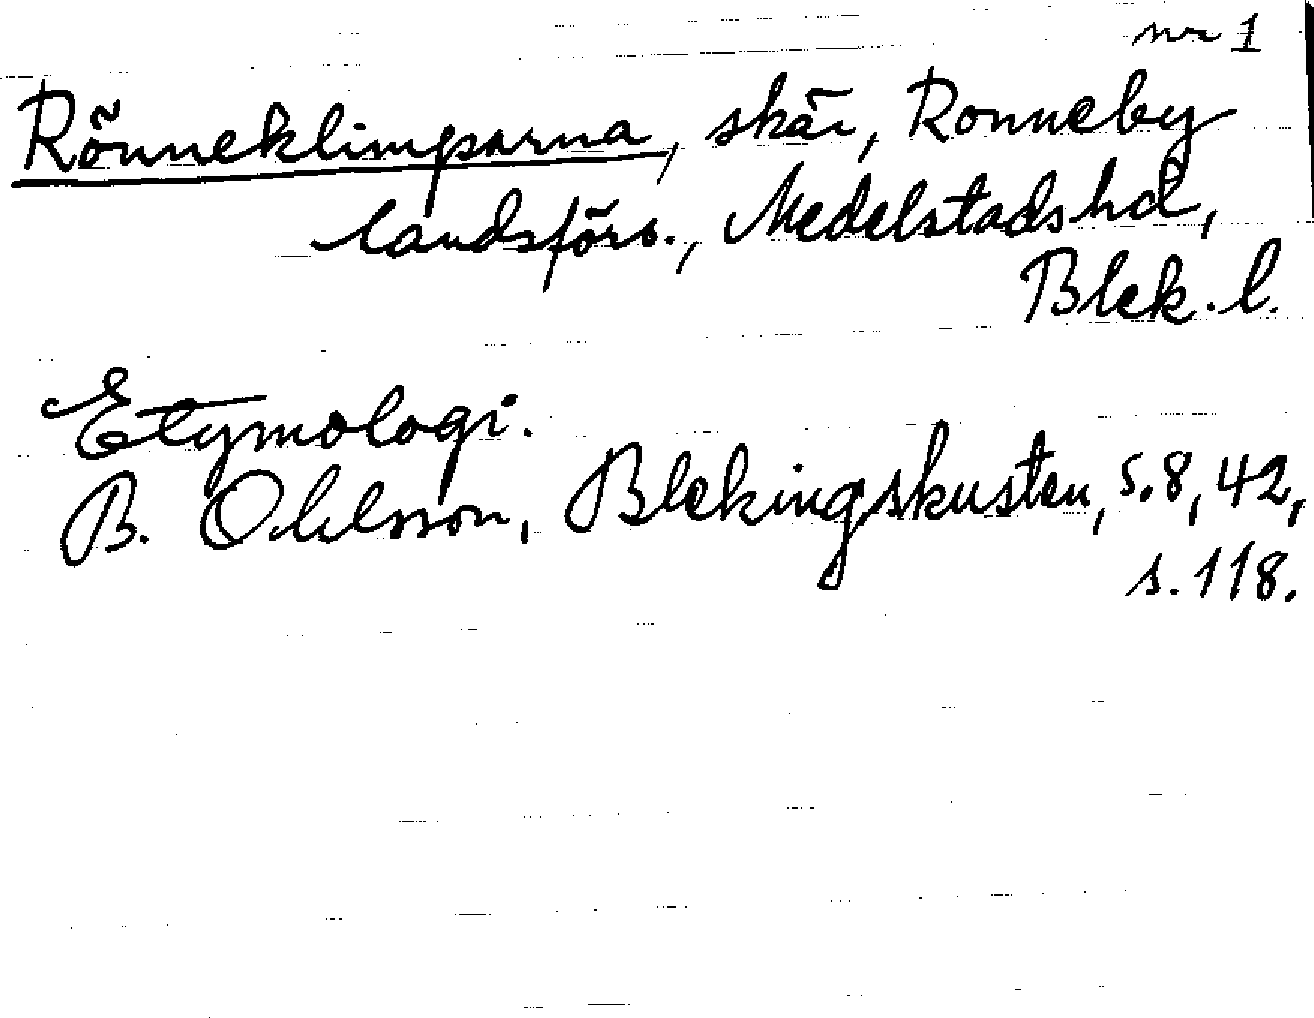 nr 1
Rönneklimparna, skär, Ronneby
landsförs., Medelstads hd,
Blek. l.
Etymologi.
B. Ohlsson, Blekingskusten, s. 8, 42,
s. 118.